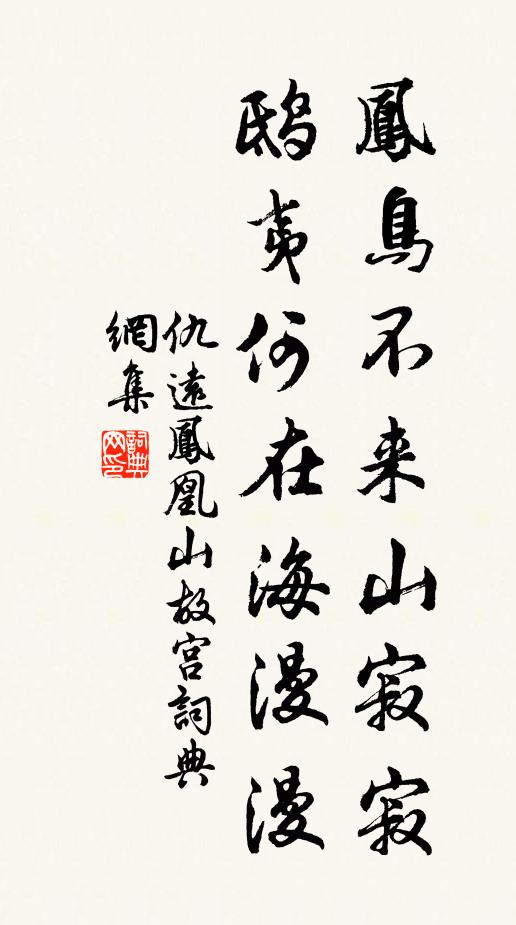 鳳鳥不来山寂寂
鴟夷何在海漫漫
仇遠鳳凰山故宫詞典
網集
詞典
网印